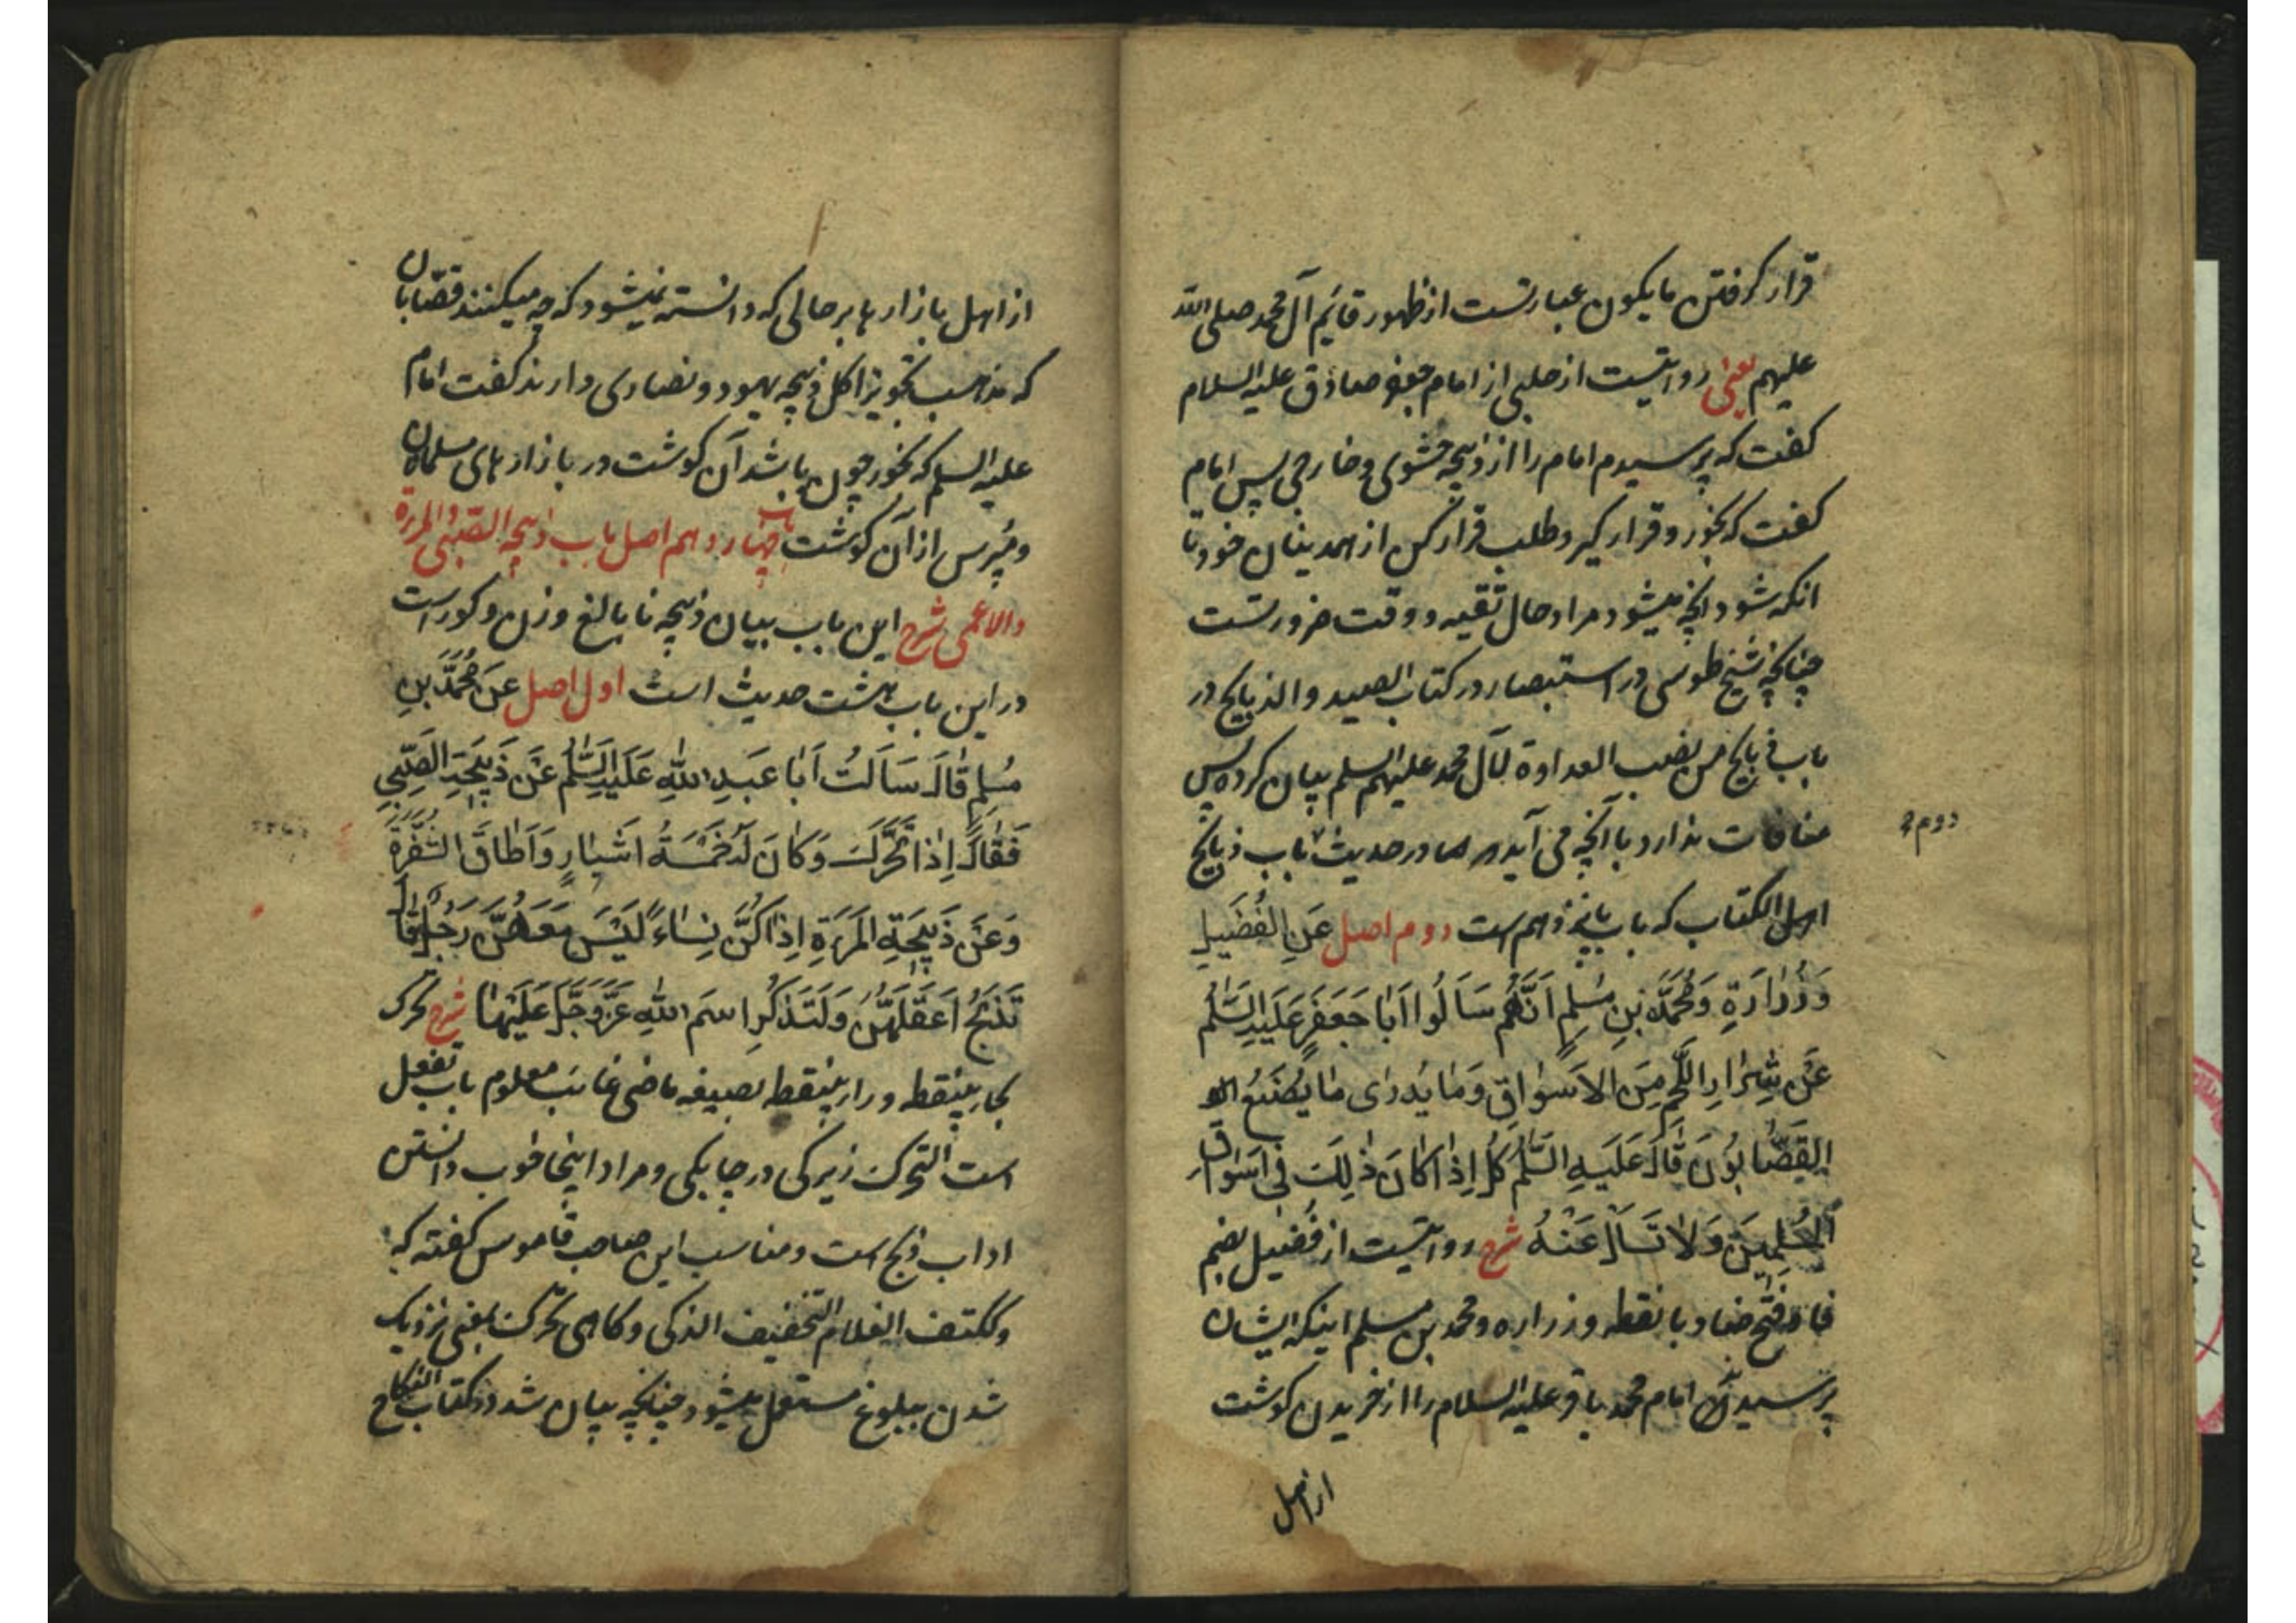 قرار کرفتن ما یکون عبارتست از ظهور قائم آل محمد صلی الله
علیهم یعنی روایتست از حلبی از امام جعفر صادق علیه السلام
کفت که پرسیدم امام را از ذبیحه حشوی و خارجی پس امام
کفت که بخور و قرار کیر و طلب قرار کن از همدینان خود تا
انکه شود انچه میشود مراد حال تقیه و وقت ضرورتست
چنانچه شیخ طوسی در استبصار در کتاب الصید و الذبایح در
باب ذبایح من نصب العداوة لآل محمد علیهم السلم بیان کرده پس
منافات ندارد با آنچه می آید در حدیث باب ذبایح
دوم
اهل الکتاب که باب پانزدهم است دوم اصل عَنِ الفُضَیلِ
وَزُرَارَةِ وَمُحَمَّدِ بنِ مُسلِمٍ اَنَّهُم سَاَلُوا اَبَا جَعفَرٍ عَلَیهِ السَّلٰم
عَن شِرَاءِ اللَّحمِ مِنَ الاَسوَاقِ وَمَا یُدرٰی مَا یَصنَعُ
القَصَّابُونَ قَالَ عَلَیهِ السَّلٰم کُل اِذَا کَانَ ذٰلِکَ فِی اَسوَاقِ
المُسلِمِینَ وَلَا تَسأَل عَنهُ شرح روایتست از فُضیل بضم
فا و فتح ضاد با نقطه و زراره و محمد بن مسلم اینکه ایشان
پرسیدند امام محمد باقر علیه السلام را از خریدن کوشت
از اهل
از اهل بازارها بر حالی که دانسته نمیشود که چه میکنند قصّابان
که مذهب تجویز اکل ذبیحه یهود و نصاری دارند کفت امام
علیه السلم که بخور چون باشد آن کوشت در بازارهای مسلمانان
و مپرس از آن کوشت باب چهاردهم اصل باب ذبیحه الصّبی والمرءة
والاعمی شرح این باب بیان ذبیحه نابالغ و زن و کور است
در این باب هشت حدیث است اول اصل عَن مُحَمَّدِ بنِ
مُسلِمٍ قَالَ سَاَلتُ اَبَا عَبدِ اللهِ عَلَیهِ السَّلٰم عَن ذَبِیحَةِ الصَّبِیِّ
فَقَالَ اِذَا تَحَرَّکَ وَکَانَ لَهُ خَمسَةُ اَشبَارٍ وَاَطَاقَ الشَّفرَةَ
وَعَن ذَبِیحَةِ المَرءَةِ اِذَا کُنَّ نِسَاءً لَیسَ مَعَهُنَّ رَجُلٌ قَالَ
تَذبَحُ اَعقَلُهُنَّ وَلتَذکُرِ اسمَ اللهِ عَزَّوَجَلَّ عَلَیهَا شرح تحرک
بحا بینقطه و را بینقطه بصیغه ماضی غایب معلوم باب تفعل
است التحرک زیرکی در چابکی و مراد اینجا خوب دانستن
اداب ذبح است و مناسب این صاحب قاموس کفته که
و ککتف الغلام الخفیف الذکی و کاهی تحرک بمعنی نزدیک
شدن ببلوغ مستعمل میشود چنانچه بیان شد در کتاب النکاح